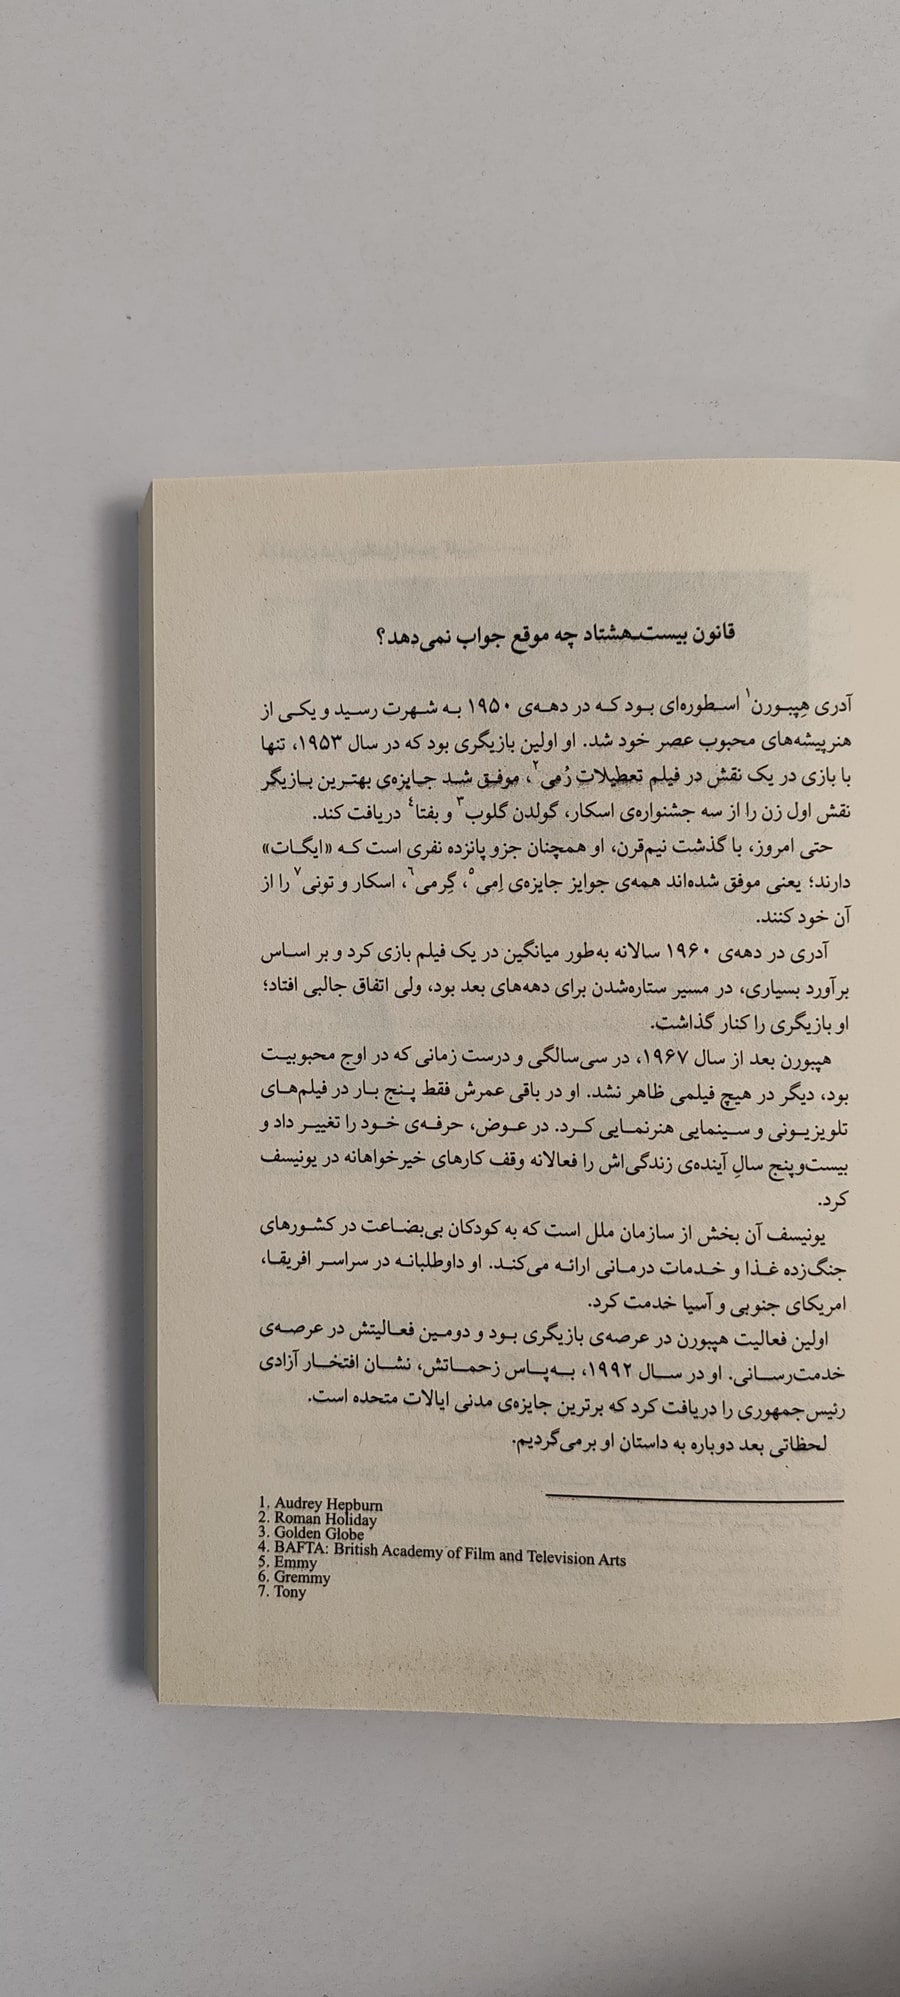 قانون بیست‌ـ‌هشتاد چه موقع جواب نمی‌دهد؟
آدری هِپبورن۱ اسطوره‌ای بود که در دهه‌ی ۱۹۵۰ به شهرت رسید و یکی از
هنرپیشه‌های محبوب عصر خود شد. او اولین بازیگری بود که در سال ۱۹۵۳، تنها
با بازی در یک نقش در فیلم تعطیلات رُمی۲، موفق شد جایزه‌ی بهترین بازیگر
نقش اول زن را از سه جشنواره‌ی اسکار، گولدن گلوب۳ و بفتا۴ دریافت کند.
حتی امروز، با گذشت نیم‌قرن، او همچنان جزو پانزده نفری است که «ایگات»
دارند؛ یعنی موفق شده‌اند همه‌ی جوایز جایزه‌ی اِمی۵، گِرمی۶، اسکار و تونی۷ را از
آن خود کنند.
آدری در دهه‌ی ۱۹۶۰ سالانه به‌طور میانگین در یک فیلم بازی کرد و بر اساس
برآورد بسیاری، در مسیر ستاره‌شدن برای دهه‌های بعد بود، ولی اتفاق جالبی افتاد؛
او بازیگری را کنار گذاشت.
هپبورن بعد از سال ۱۹۶۷، در سی‌سالگی و درست زمانی که در اوج محبوبیت
بود، دیگر در هیچ فیلمی ظاهر نشد. او در باقی عمرش فقط پنج بار در فیلم‌های
تلویزیونی و سینمایی هنرنمایی کرد. در عوض، حرفه‌ی خود را تغییر داد و
بیست‌وپنج سالِ آینده‌ی زندگی‌اش را فعالانه وقف کارهای خیرخواهانه در یونیسف
کرد.
یونیسف آن بخش از سازمان ملل است که به کودکان بی‌بضاعت در کشورهای
جنگ‌زده غذا و خدمات درمانی ارائه می‌کند. او داوطلبانه در سراسر افریقا،
امریکای جنوبی و آسیا خدمت کرد.
اولین فعالیت هپبورن در عرصه‌ی بازیگری بود و دومین فعالیتش در عرصه‌ی
خدمت‌رسانی. او در سال ۱۹۹۲، به‌پاس زحماتش، نشان افتخار آزادی
رئیس‌جمهوری را دریافت کرد که برترین جایزه‌ی مدنی ایالات متحده است.
لحظاتی بعد دوباره به داستان او برمی‌گردیم.
1. Audrey Hepburn
2. Roman Holiday
3. Golden Globe
4. BAFTA: British Academy of Film and Television Arts
5. Emmy
6. Gremmy
7. Tony